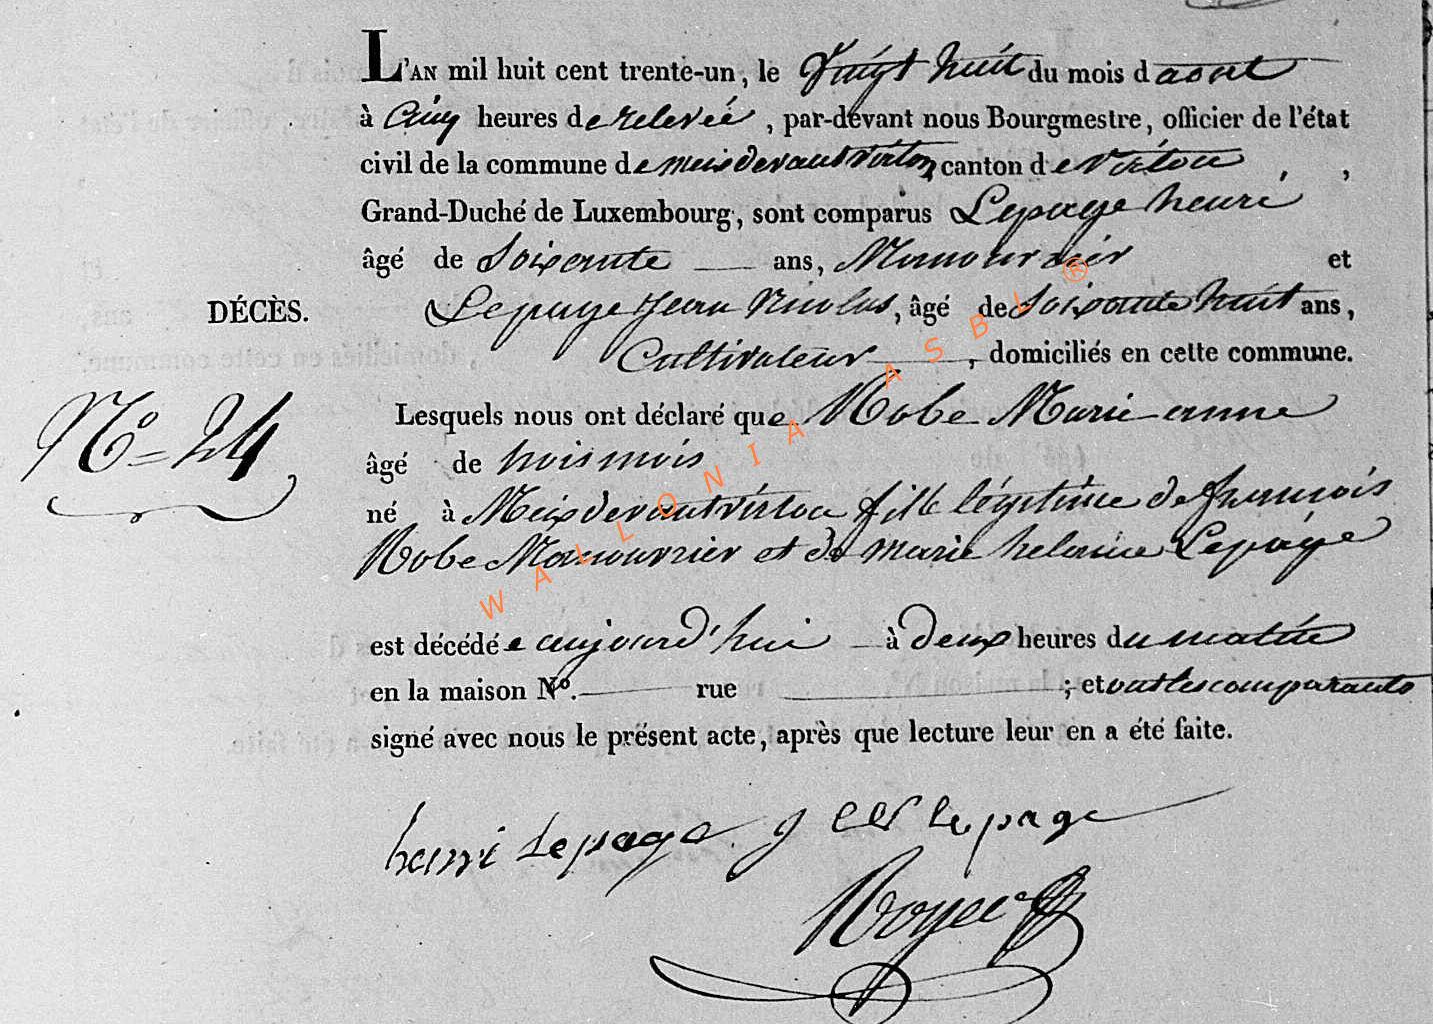 L'AN mil huit cent trente-un, le Vingt huit du mois d'aout
à Cinq heures de relevée, par-devant nous Bourgmestre, officier de l'état
civil de la commune de meix devant virton, canton de virton,
Grand-Duché de Luxembourg, sont comparus Lepage henri
âgé de Soixante ans, Manouvrier et
DÉCÈS. Lepage Jean Nicolas, âgé de Soixante huit ans,
Cultivateur, domiciliés en cette commune.
Lesquels nous ont déclaré que Robe Marie anne
N° 24 âgé de trois mois
né à Meix devant virton fille légitime de françois
Robe Manouvrier et de marie helaine Lepage
est décédée aujourd'hui à deux heures du matin
en la maison N°. rue ; et ont les comparants
signé avec nous le présent acte, après que lecture leur en a été faite.
henri Lepage J Lepage
WALLONIA ASBL ®